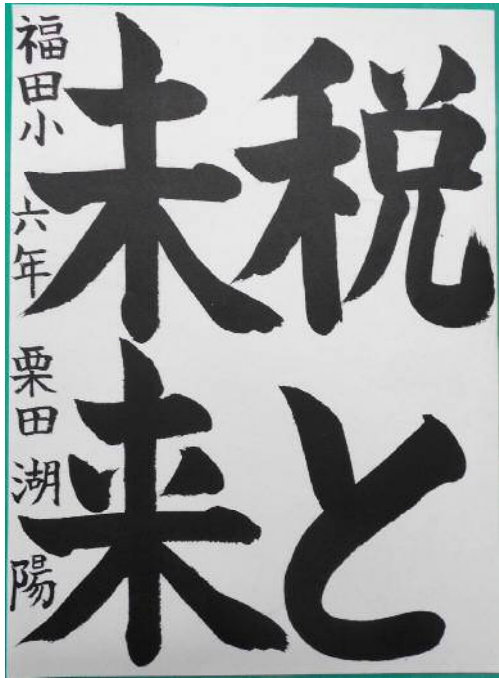 税と
未来
福田小 六年 栗田 湖陽